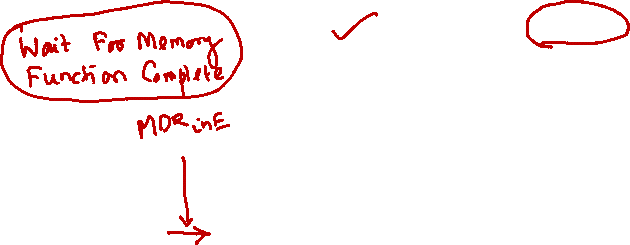 Wait For Memory
Function Complete
MDRinE